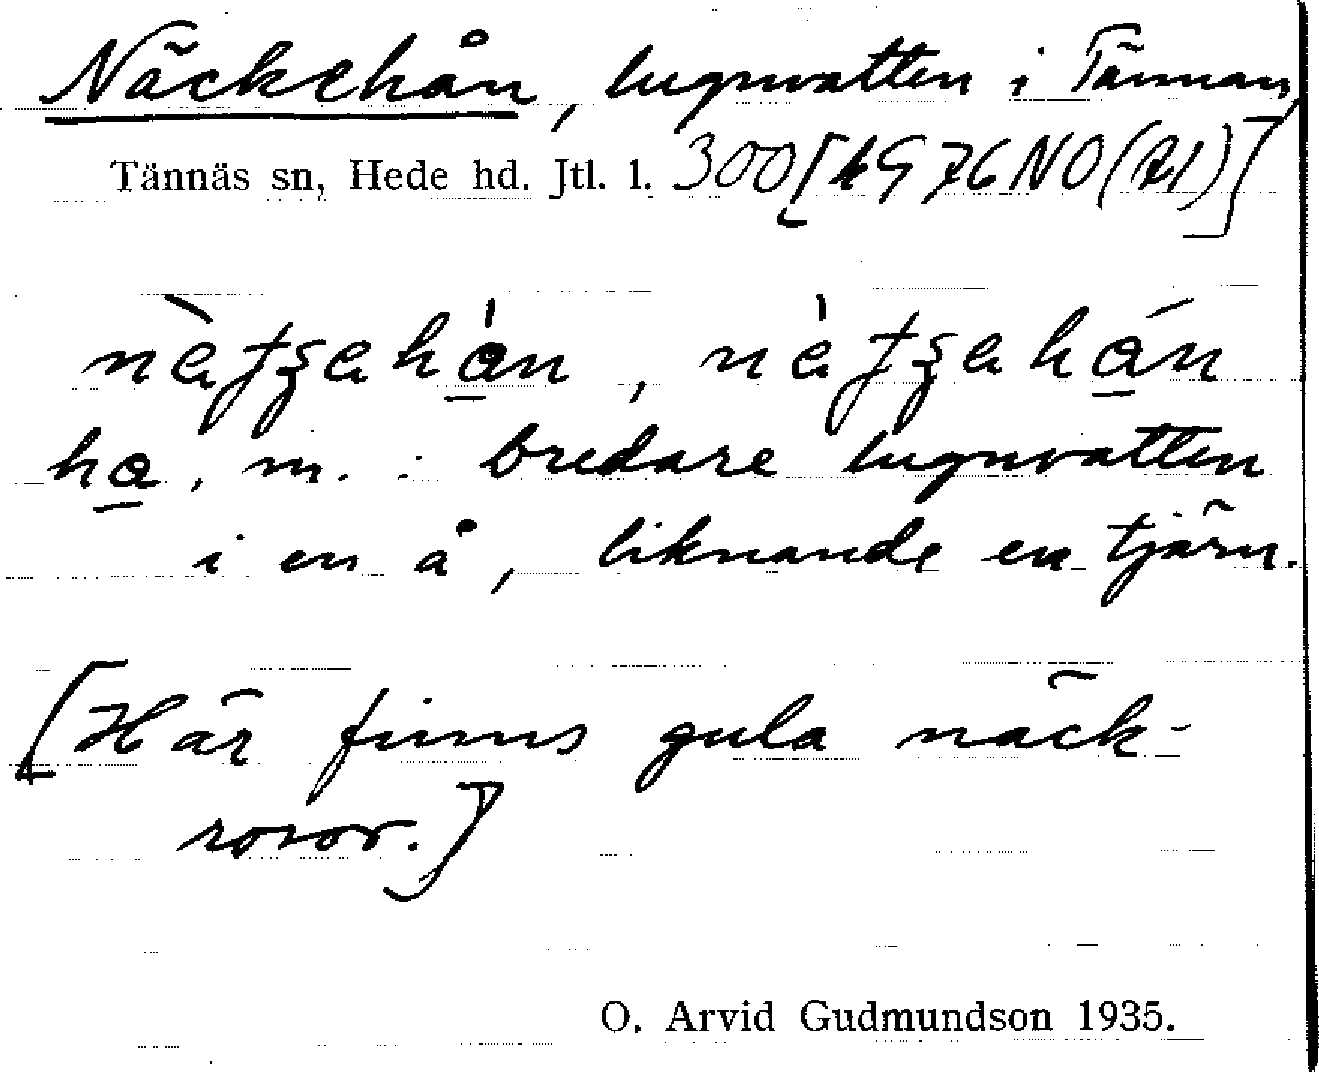 Näckehån, lugnvatten i Tännan,
Tännäs sn, Hede hd. Jtl. l. 300 [49 76 NO (21)]
bredare lugnvatten
i en å, liknande en tjärn.
[Här finns gula näck-
rosor.]
O. Arvid Gudmundson 1935.